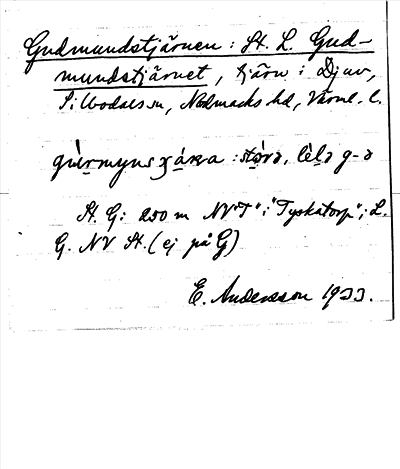 Gudmundstjärnen: St. L. Gud-
mundstjärnet, tjärn i Djuv,
Silbodals sn, Nordmarks hd, Värml. l.
: stọrə, lèlə g-ə
St. G: 200 m NV "T" i "Tyskåtorp"; L.
G. NV St. (ej på G)
E. Andersson 1933.